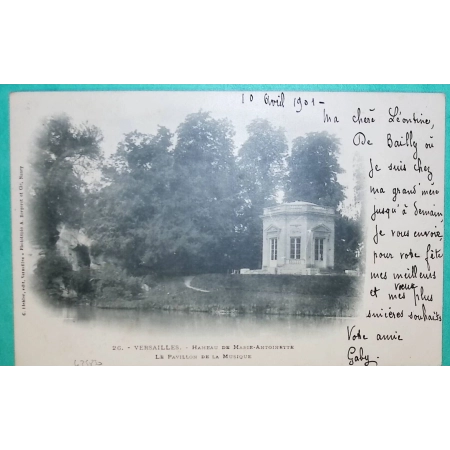 10 Avril 1901 -
Ma chère Léontine,
De Bailly où
je suis chez
ma grand'mère
jusqu'à demain,
je vous envoie,
pour votre fête
mes meilleurs
vœux
et mes plus
sincères souhaits
Votre amie
Gaby.
26. - VERSAILLES. - HAMEAU DE MARIE-ANTOINETTE
LE PAVILLON DE LA MUSIQUE